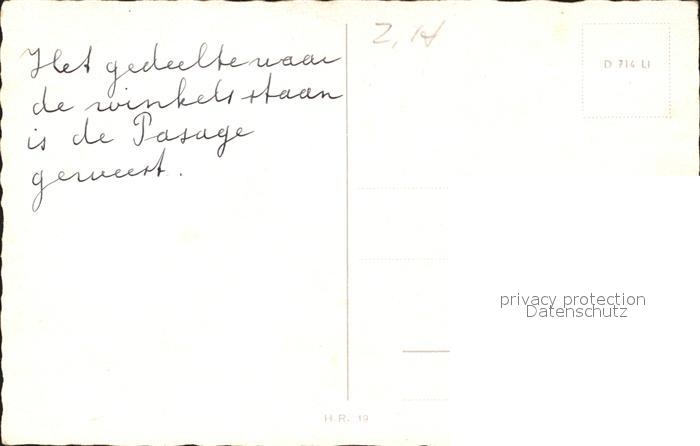 Het gedeelte waar
de winkels staan
is de Pasage
geweest.
Z, H
D 714 LI
privacy protection
Datenschutz
H.R. 19